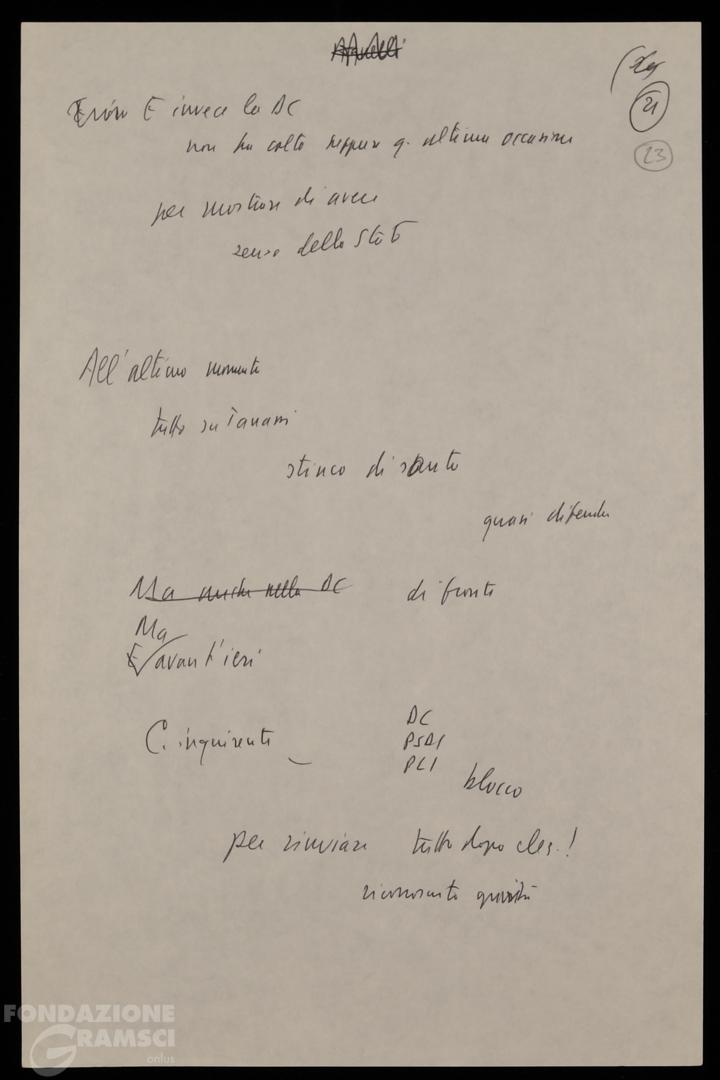 21
23
E invece la DC
non ha colto neppure q. ultima occasione
per mostrare di avere
senso dello Stato
All'ultimo momento
tutto su Tanassi
stinco di santo
quasi difende
Ma anche nella DC di fronte
Ma
avant'ieri
C. inquirente
DC
PSDI
PLI
blocco
per rinviare tutto dopo elez.!
riconosciuta gravità
FONDAZIONE
GRAMSCI
onlus